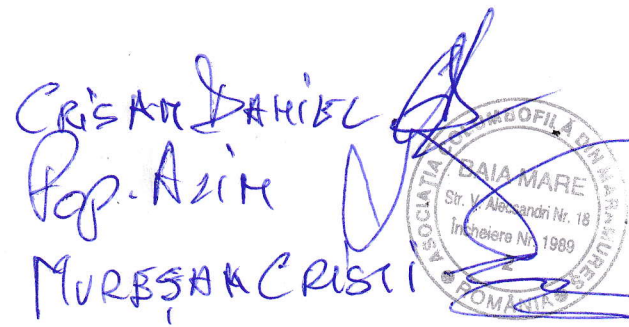 CRIŞAN DANIEL
Pop. Azin
MUREŞAN CRISTI
ASOCIAŢIA COLUMBOFILĂ DIN MARAMUREŞ
BAIA MARE
Str. V. Alecsandri Nr. 18
Încheiere Nr. 1989
2
ROMÂNIA